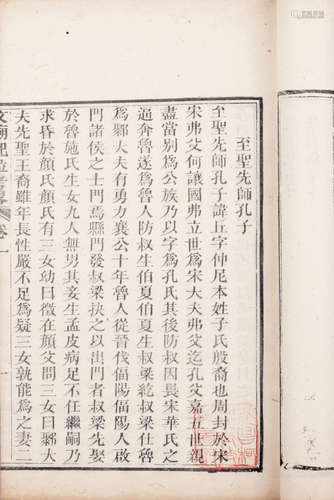 至聖先師孔子
至聖先師孔子諱丘字仲尼本姓子氏殷裔也周封於宋
宋弗父何讓國弗立世爲宋大夫弗父迄孔父嘉五世親
盡當別爲公族乃以字爲孔氏其後防叔因畏宋華氏之
逼奔魯遂爲魯人防叔生伯夏伯夏生叔梁紇叔梁紇
爲郰大夫有勇力襄公十年魯人從晉伐偪陽偪陽人啟
門諸侯之士門焉縣門發叔梁抉之以出門者叔梁先娶
於魯施氏生女九人無男其妾生孟皮病足不任繼嗣乃
求昏於顏氏顏氏有三女幼曰徵在顏父問三女曰郰大
夫先聖王裔雖年長性嚴不足爲疑三女孰能爲之妻二
文廟祀位考畧 卷一